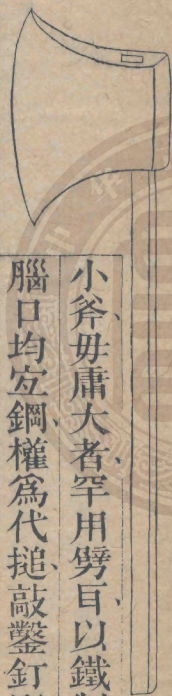 小斧毋庸大者罕用劈㫖以鐵
腦口均宐鋼權爲代搥敲鑿釘